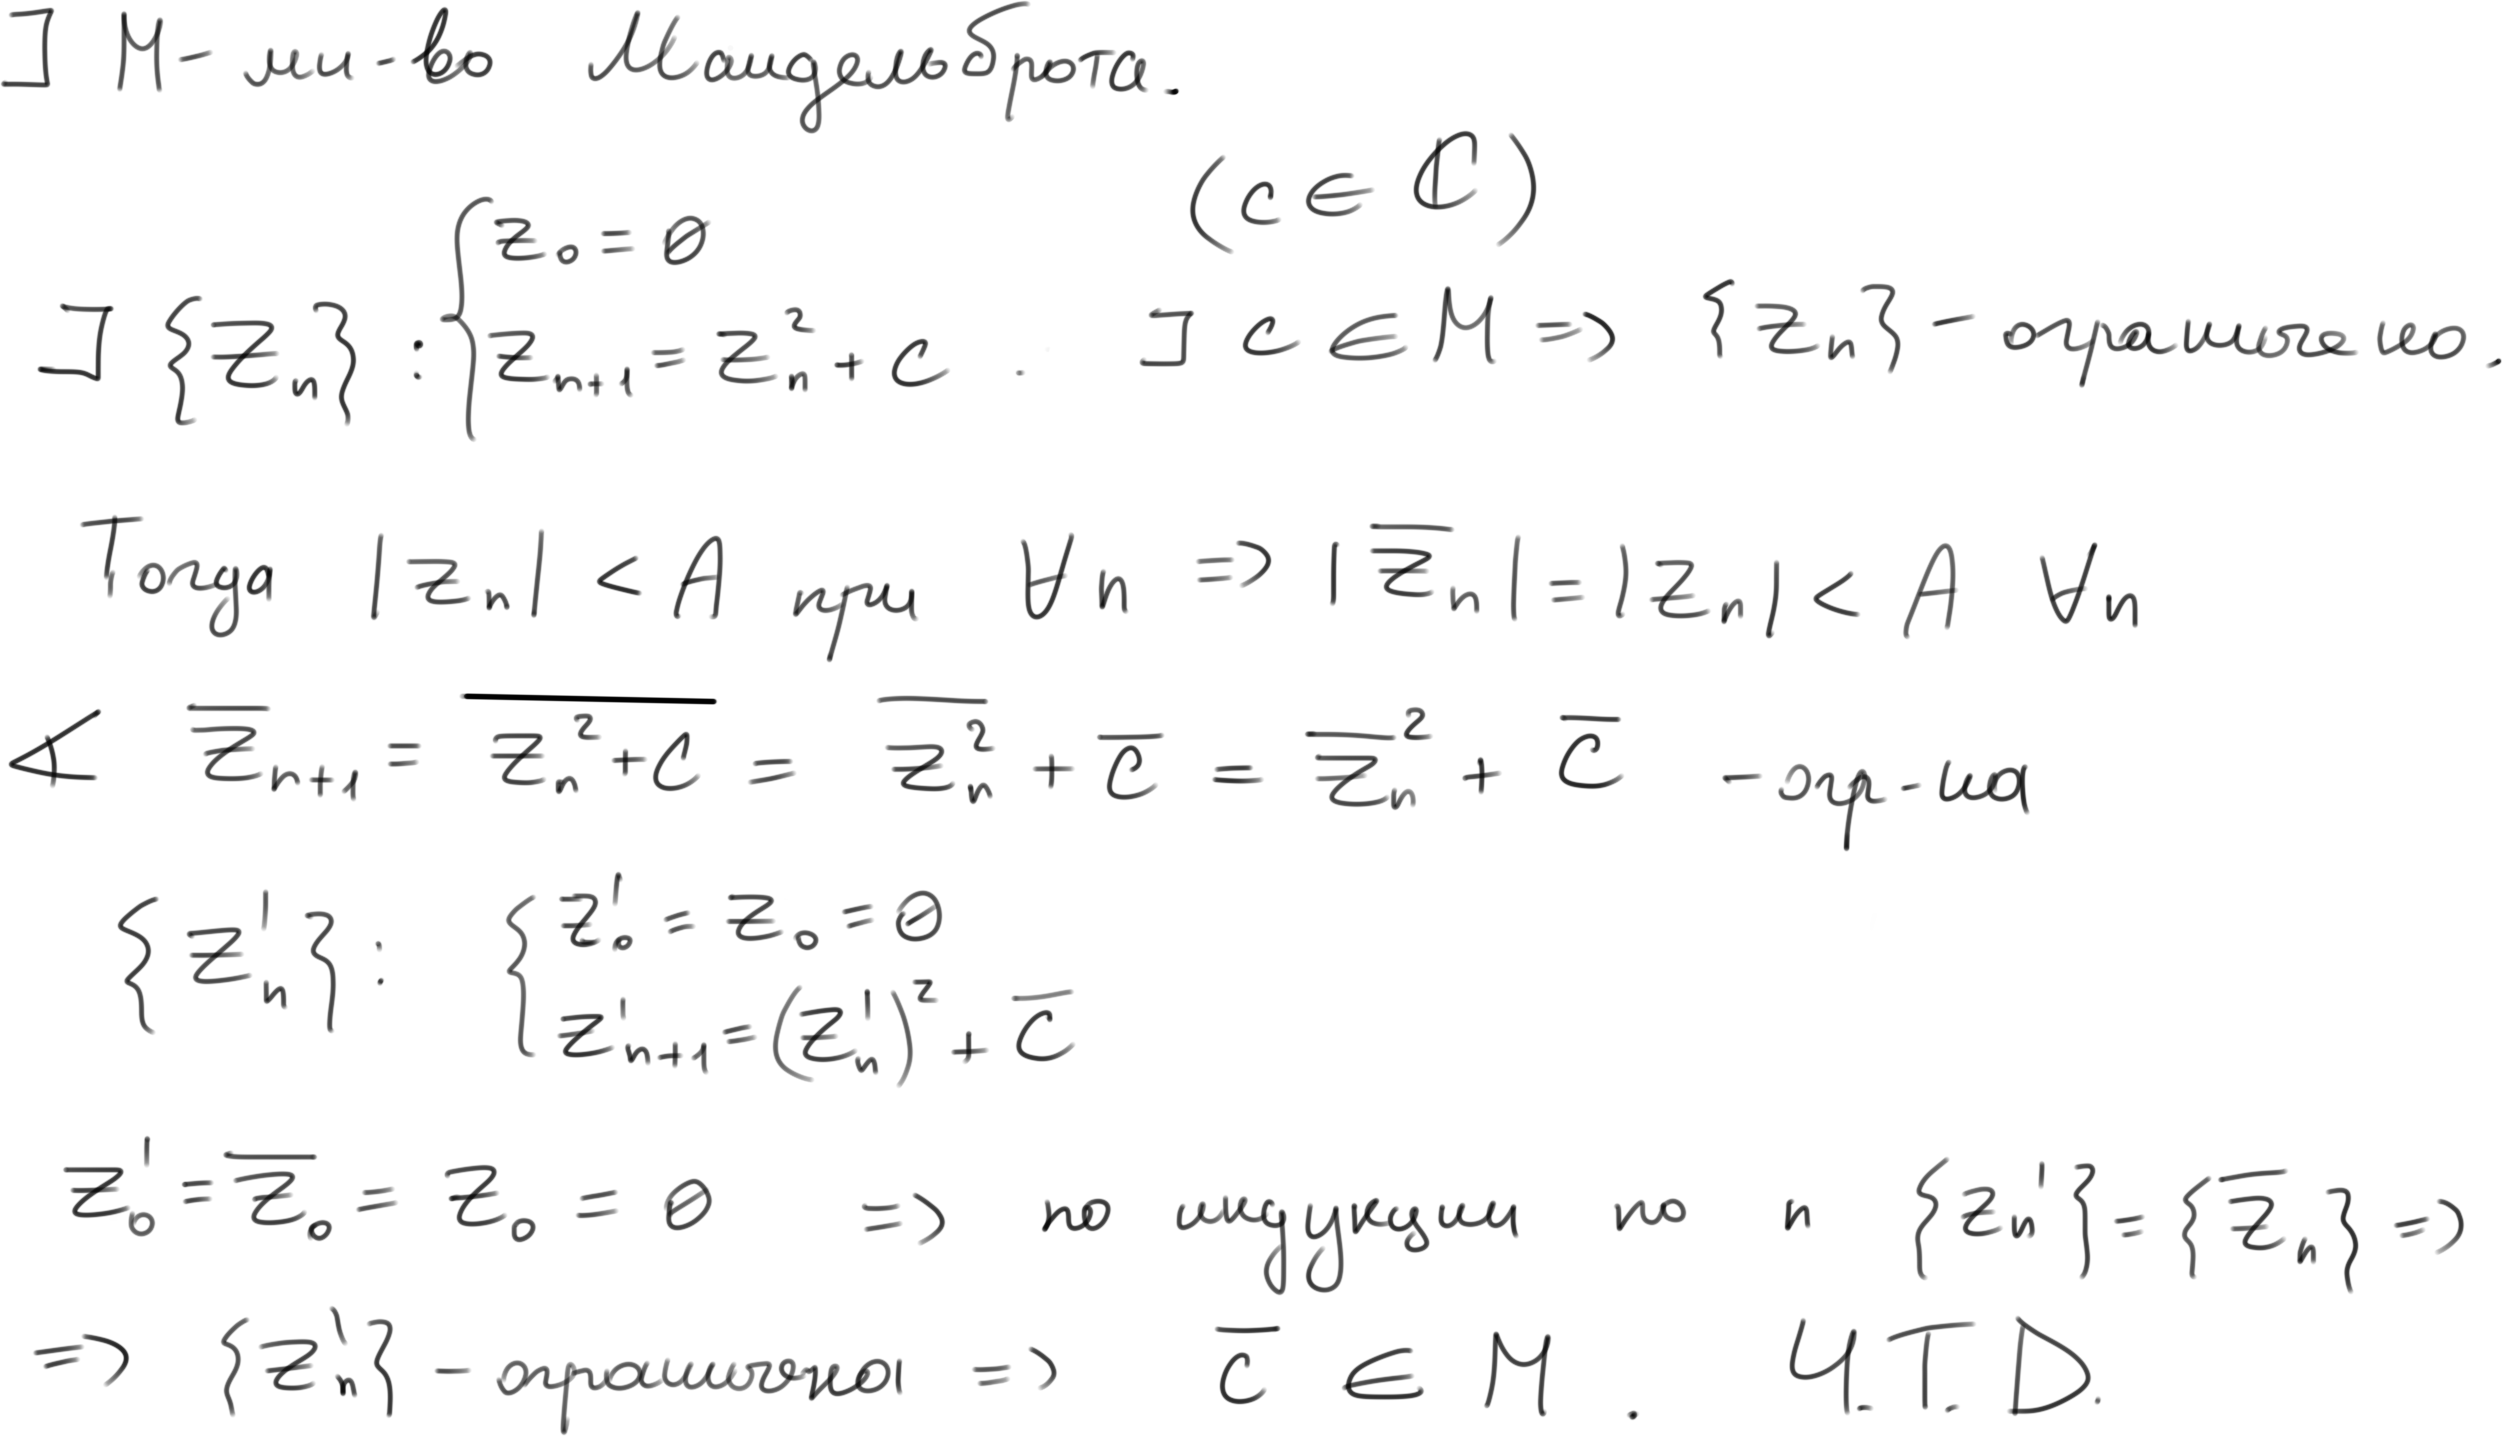 ] M - мн-во Мандельброта.
(c ∈ ℂ)
] {zₙ} : { z₀ = 0
zₙ₊₁ = zₙ² + c . ] c ∈ M => {zₙ} - ограничено.
Тогда |zₙ| < A при ∀n => |z̅ₙ| = |zₙ| < A ∀n
∢ z̅ₙ₊₁ = \overline{zₙ² + c} = \overline{zₙ²} + c̅ = z̅ₙ² + c̅ - огр-на
{z'ₙ} : { z'₀ = z₀ = 0
z'ₙ₊₁ = (z'ₙ)² + c̅
z'₀ = z̅₀ = z₀ = 0 => по индукции по n {z'ₙ} = {z̅ₙ} =>
=> {z'ₙ} - ограничена => c̅ ∈ M. Ч.Т.D.